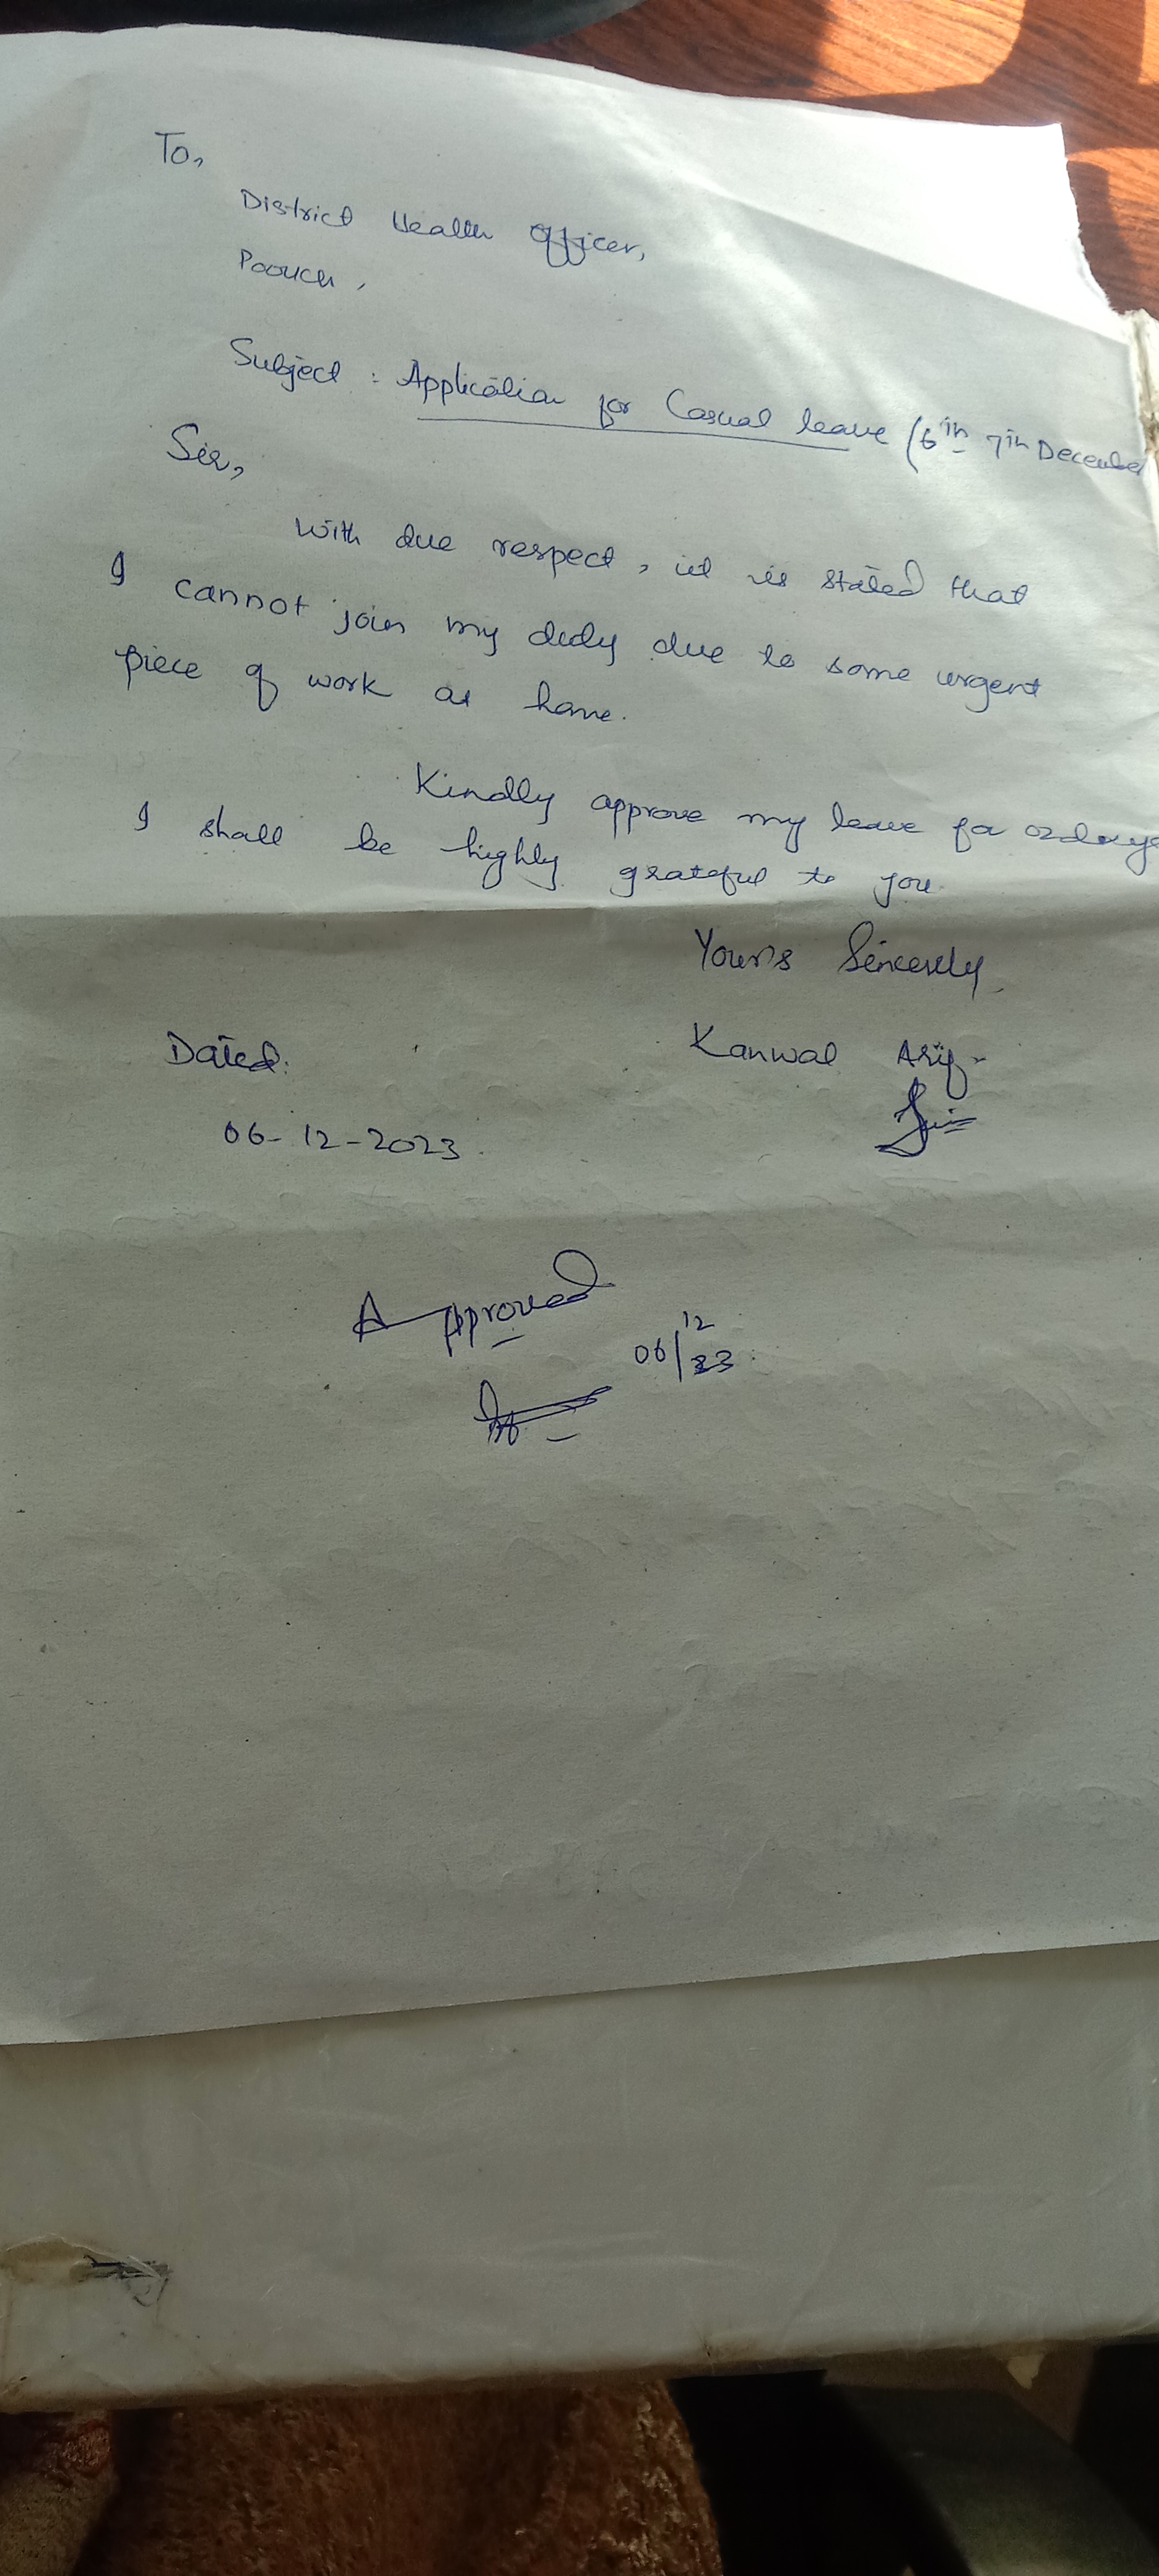 To,
District Health Officer,
Poonch,
Subject : Application for Casual leave (6th 7th December
Sir,
With due respect, it is stated that
I cannot join my duty due to some urgent
piece of work at home.
Kindly approve my leave for 02days
I shall be highly grateful to you.
Yours Sincerely,
Kanwal Arif
Dated:
06-12-2023.
Approved
06/12/23